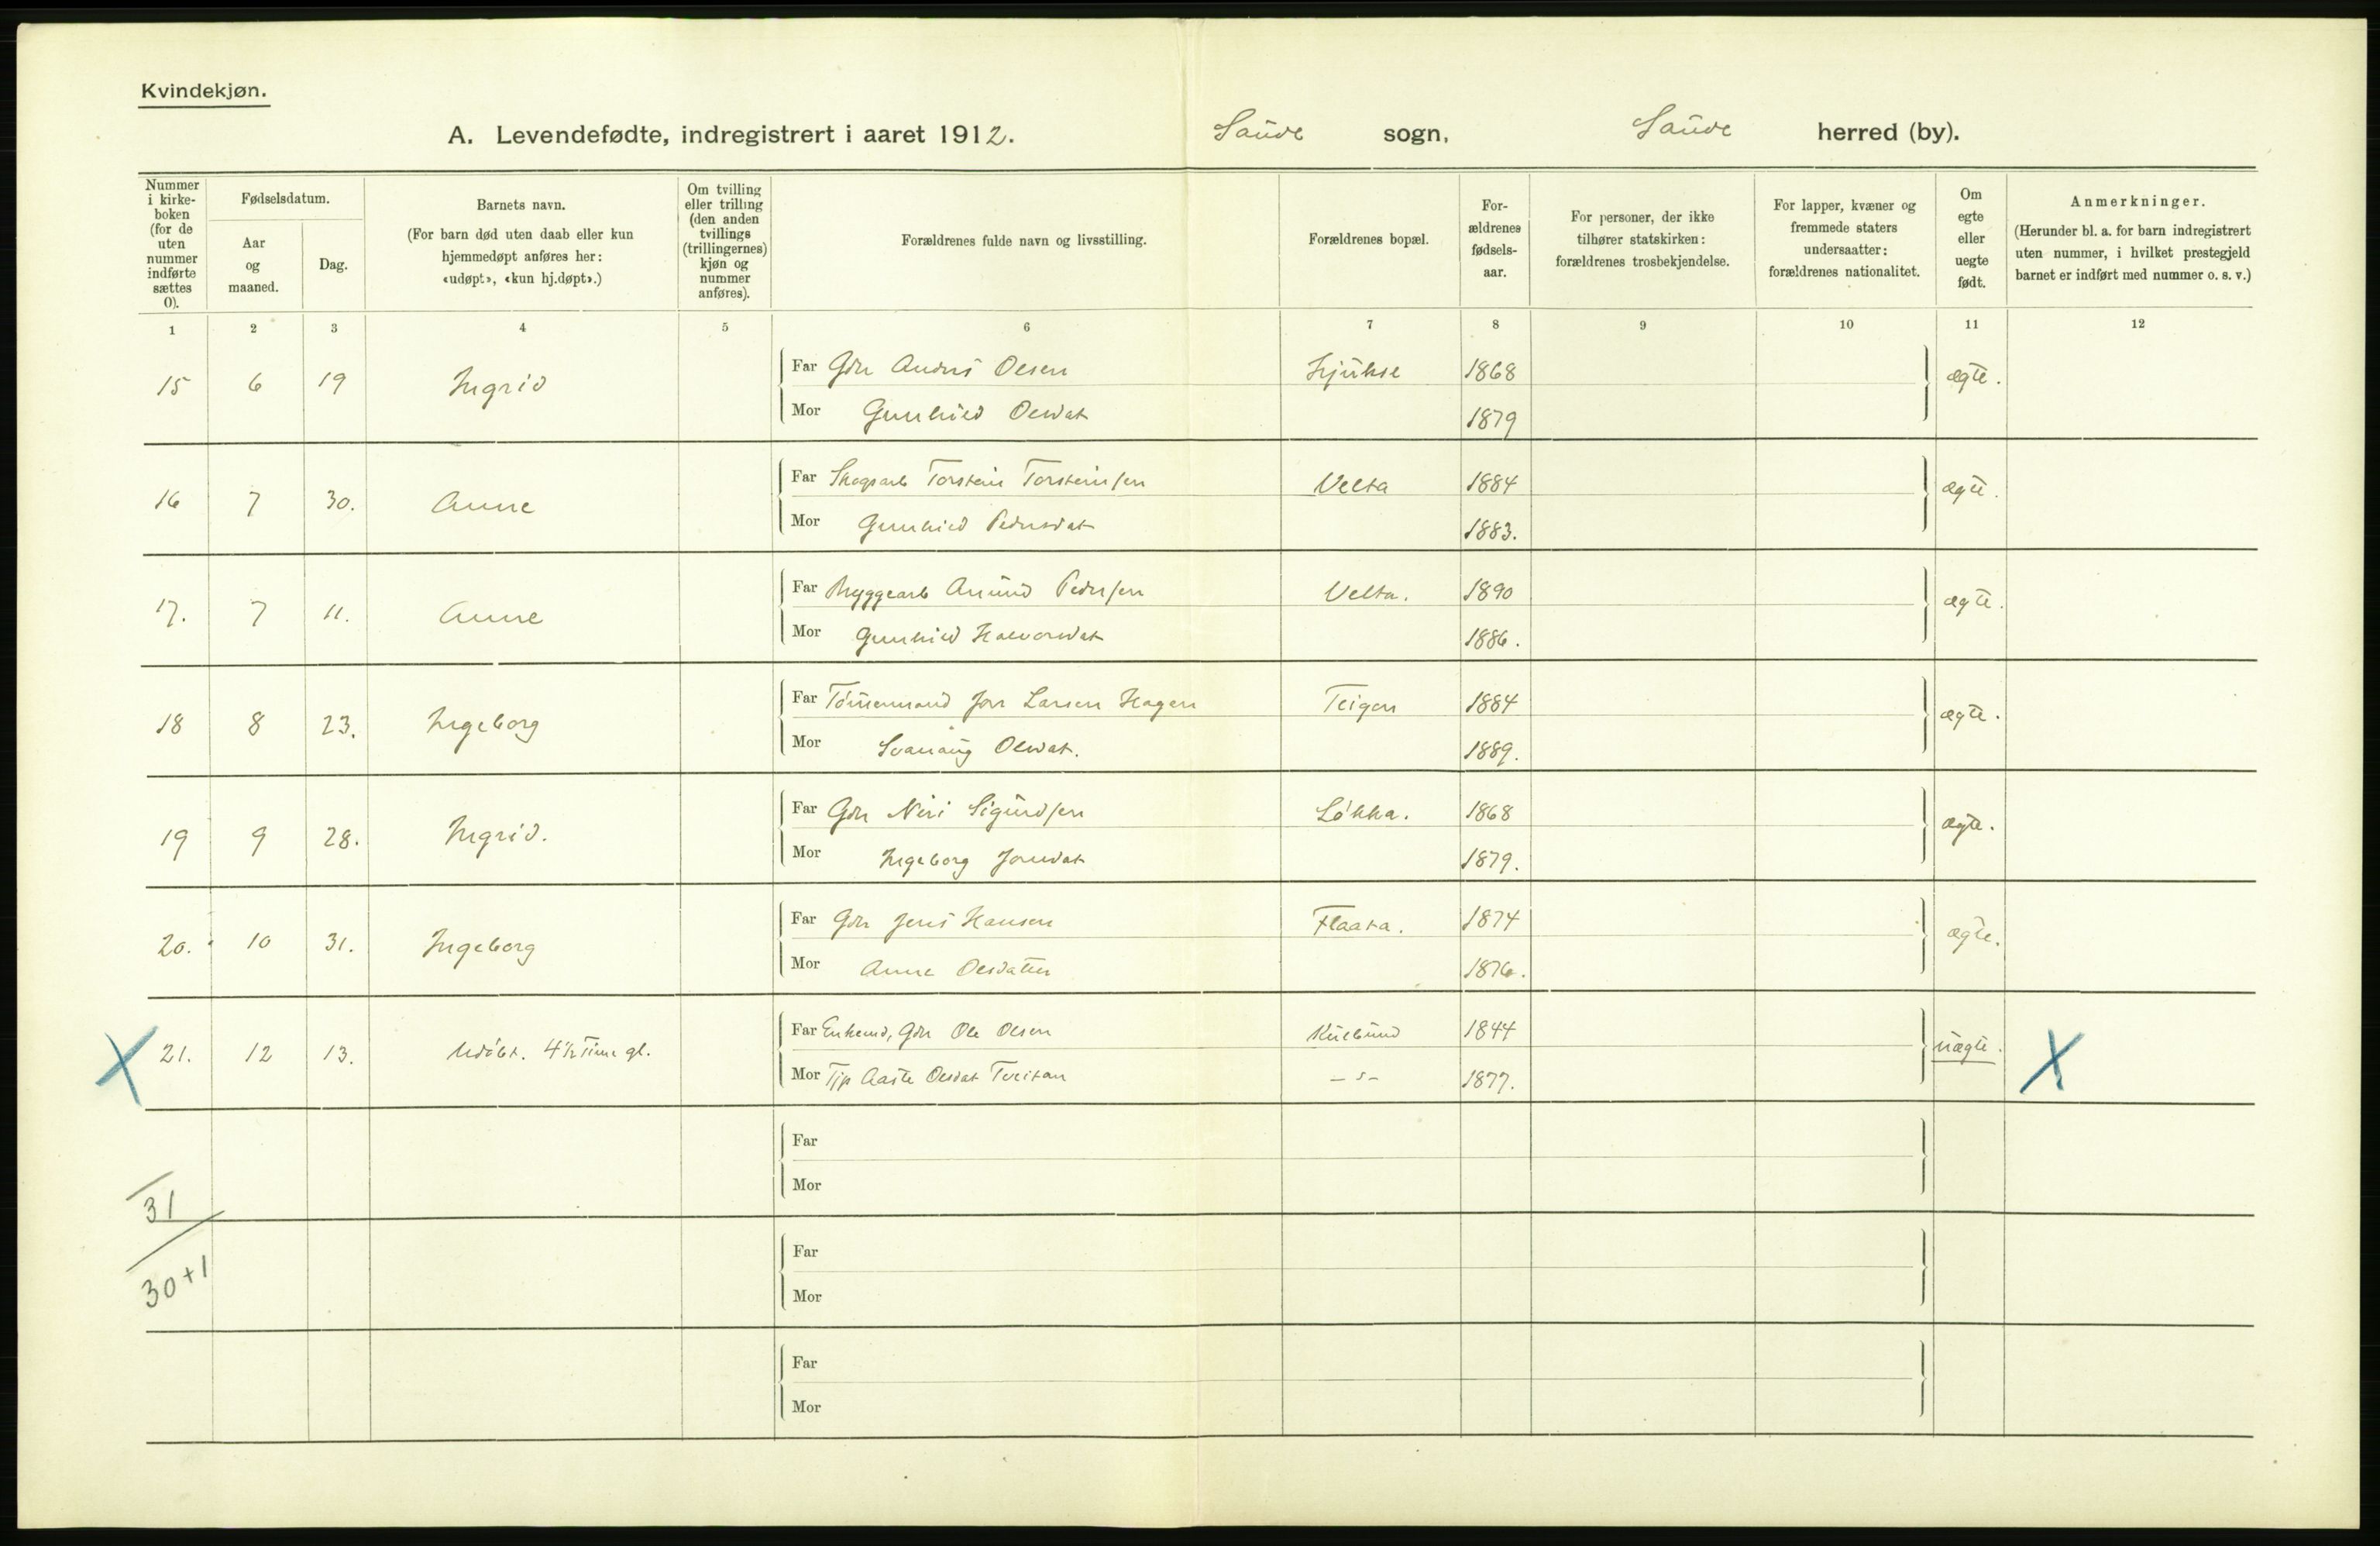 Kvindekjøn.
A. Levendefødte, indregistrert i aaret 1912. Saude sogn, Saude herred (by).
Nummer i kirkeboken (for de uten nummer indførte sættes 0).
Fødselsdatum.
Aar og maaned.
Dag.
Barnets navn.
(For barn død uten daab eller kun hjemmedøpt anføres her: «udøpt», «kun hj.døpt».)
Om tvilling eller trilling (den anden tvillings (trillingernes) kjøn og nummer anføres).
Forældrenes fulde navn og livsstilling.
Forældrenes bopæl.
Forældrenes fødselsaar.
For personer, der ikke tilhører statskirken: forældrenes trosbekjendelse.
For lapper, kvæner og fremmede staters undersaatter: forældrenes nationalitet.
Om egte eller uegte født.
Anmerkninger.
(Herunder bl. a. for barn indregistrert uten nummer, i hvilket prestegjeld barnet er indført med nummer o. s. v.)
1 2 3 4 5 6 7 8 9 10 11 12
15 6 19 Ingrid Far Gbr Anders Olsen Hjukse 1868 ægte.
Mor Gunhild Olsdat 1879
16 7 30. Anne Far Skogsarb Torstein Torsteinsen Velta 1884 ægte.
Mor Gunhild Pedersdat 1883.
17. 7 11. Anne Far Bryggearb Amund Pedersen Velta. 1890 ægte.
Mor Gunhild Halvorsdat 1886.
18 8 23. Ingeborg Far Tømmermand Jon Larsen Hagen Teigen 1884 ægte.
Mor Svanaug Olsdat. 1889.
19 9 28. Ingrid. Far Gbr Neri Sigurdsen Løkka. 1868 ægte.
Mor Ingeborg Jonsdat 1879.
20. 10 31. Ingeborg Far Gbr Jens Hansen Flaata. 1874 ægte.
Mor Anne Olsdatter 1876.
X 21. 12 13. Udøbt. 4½ Time gl. Far Enkemd, Gbr Ole Olsen Kulbund 1844 uægte. X
Mor Tjp Aaste Olsdat Tveitan – s – 1877.
Far
Mor
31
30+1
Far
Mor
Far
Mor